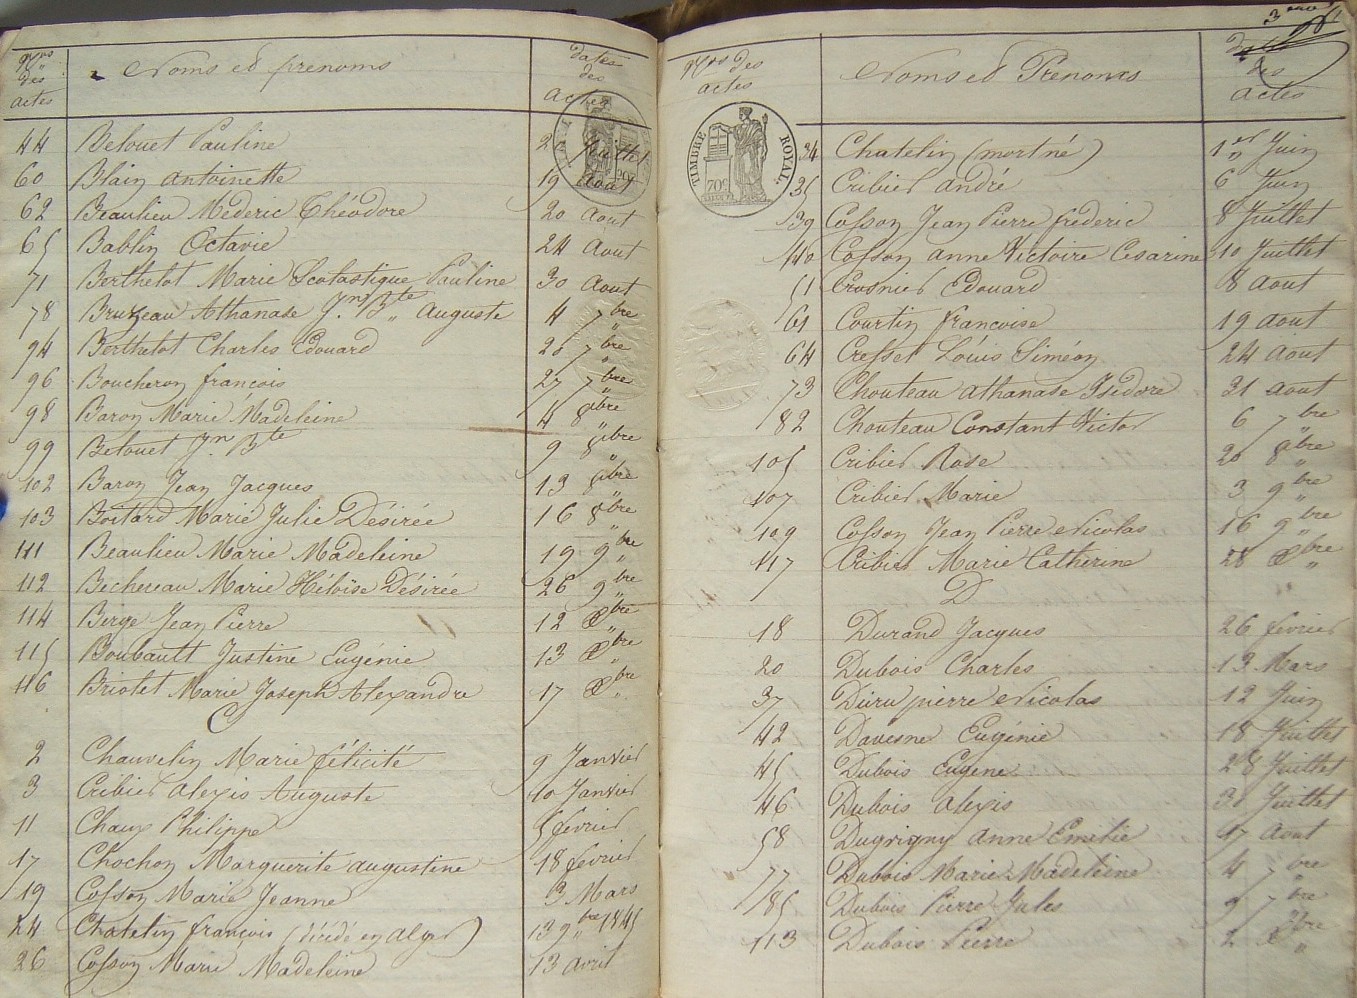 Nros des actes
Noms et prenoms
dates des actes
44 Belouet Pauline 2 Juillet
60 Blain Antoinette 19 Aout
62 Beaulieu Méderic Théodore 20 Aout
65 Bablin Octavie 24 Aout
71 Berthelot Marie Scolastique Pauline 30 Aout
78 Bruzeau Athanase Jn Bte Auguste 4 7bre
94 Berthelot Charles Edouard 26 7bre
96 Boucheron françois 27 7bre
98 Baron Marie Madeleine 4 8bre
99 Belouet Jn Bte 9 8bre
102 Baron Jean Jacques 13 8bre
103 Boitard Marie Julie Désirée 16 8bre
111 Beaulieu Marie Madeleine 19 9bre
112 Bechereau Marie Héloïse Désirée 26 9bre
114 Berge Jean Pierre 12 Xbre
115 Boubault Justine Eugénie 13 Xbre
116 Briolet Marie Joseph Alexandre 17 Xbre
C
2 Chauvelin Marie félicité 9 Janvier
3 Cribier Alexis Auguste 10 Janvier
11 Chaux Philippe 5 février
17 Chochon Marguerite augustine 18 février
19 Cosson Marie Jeanne 3 Mars
24 Chatelin françois (décédé en alger) 13 9bre 1845
26 Cosson Marie Madeleine 13 avril
3
Nros des actes
Noms et Prenoms
dates des actes
TIMBRE ROYAL
70c
34 Chatelin (mort né) 1er Juin
35 Cribier andré 6 Juin
39 Cosson Jean Pierre fréderic 8 Juillet
40 Cosson anne Victoire Cesarine 10 Juillet
51 Crosnier Edouard 8 aout
61 Courtin francoise 19 aout
64 Cresset Louis Siméon 24 Aout
73 Chouteau athanase Isidore 31 aout
82 Chouteau Constant Victor 6 7bre
105 Cribier Rose 20 8bre
107 Cribier Marie 3 9bre
109 Cosson Jean Pierre Nicolas 16 9bre
117 Cribier Marie Catherine 28 Xbre
D
18 Durand Jacques 26 février
20 Dubois Charles 13 Mars
37 Duru pierre Nicolas 12 Juin
42 Davesne Eugénie 18 Juillet
45 Dubois Eugene 28 Juillet
46 Dubois Alexis 30 Juillet
58 Dugrigny Anne Emilie 17 Aout
77 Dubois Marie Madeleine 4 7bre
85 Dubois Pierre Jules 9 7bre
113 Dubois Pierre 2 Xbre